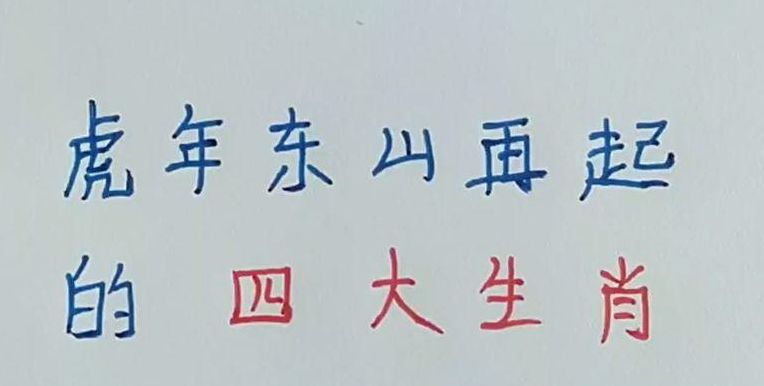 虎年东山再起
的四大生肖